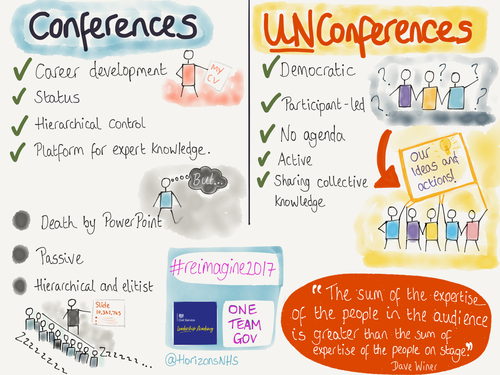 Conferences
Career development
MY
CV
Status
Hierarchical control
Platform for expert knowledge.
But...
Death by PowerPoint
Passive
Hierarchical and elitist
Slide
Zzzzzzz
Zzzzz...
#reimagine2017
Civil Service
Leadership Academy
ONE
TEAM
GOV
@HorizonsNHS
UNConferences
Democratic
? ? ? ?
Participant-led
No agenda
Active
Sharing collective
knowledge.
Our
Ideas and
actions!
"The sum of the expertise
of the people in the audience
is greater than the sum of
expertise of the people on stage."
Dave Winer